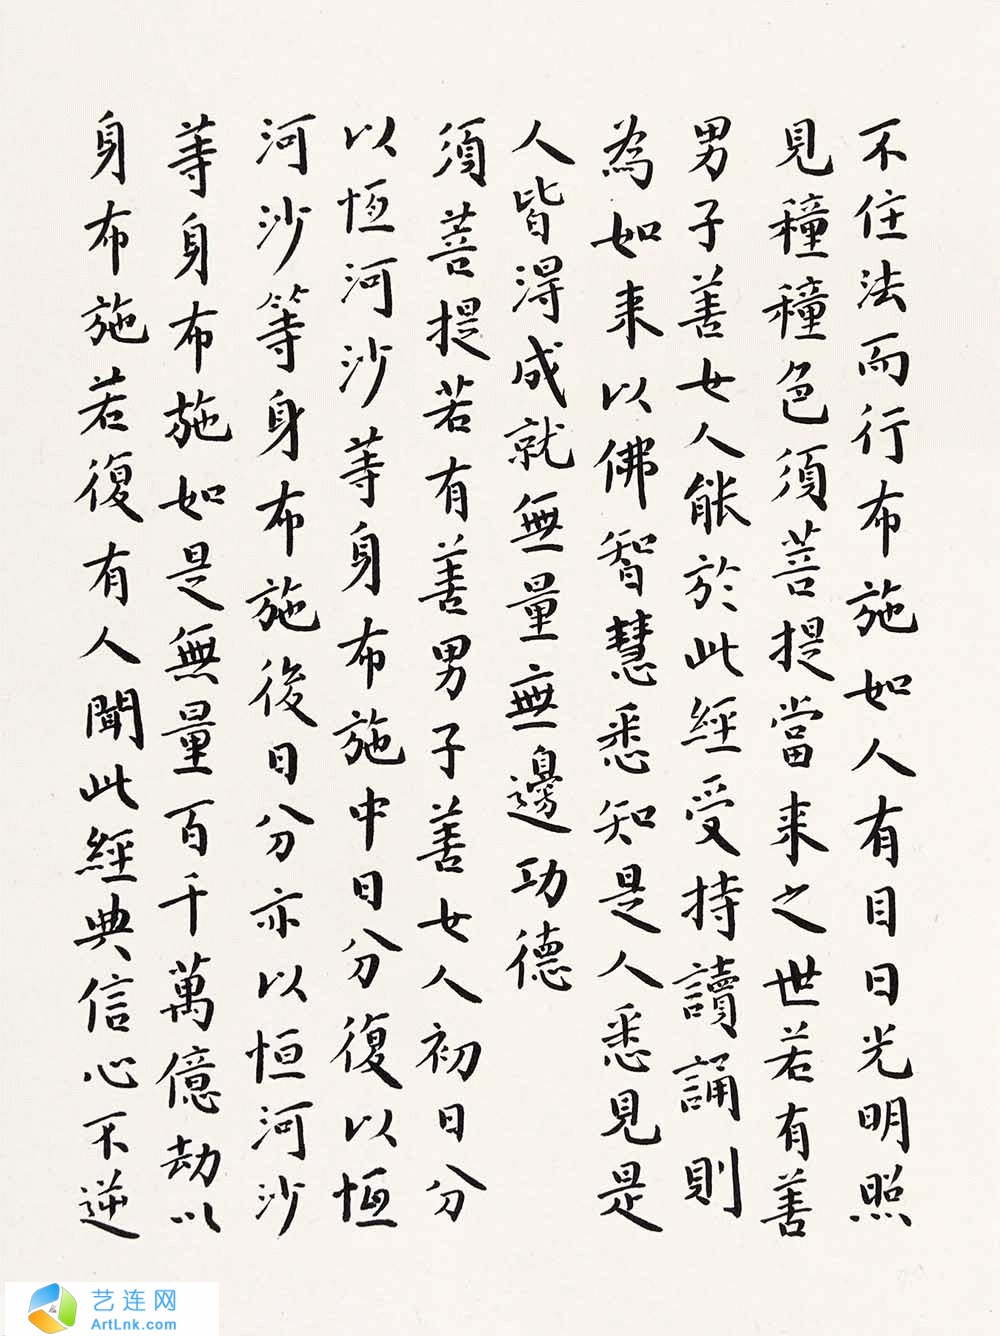 不住法而行布施如人有目日光明照
見種種色須菩提當来之世若有善
男子善女人能於此經受持讀誦則
為如来以佛智慧悉知是人悉見是
人皆得成就無量無邊功德
須菩提若有善男子善女人初日分
以恆河沙等身布施中日分復以恆
河沙等身布施後日分亦以恒河沙
等身布施如是無量百千萬億劫以
身布施若復有人聞此經典信心不逆
艺连网
ArtLnk.com